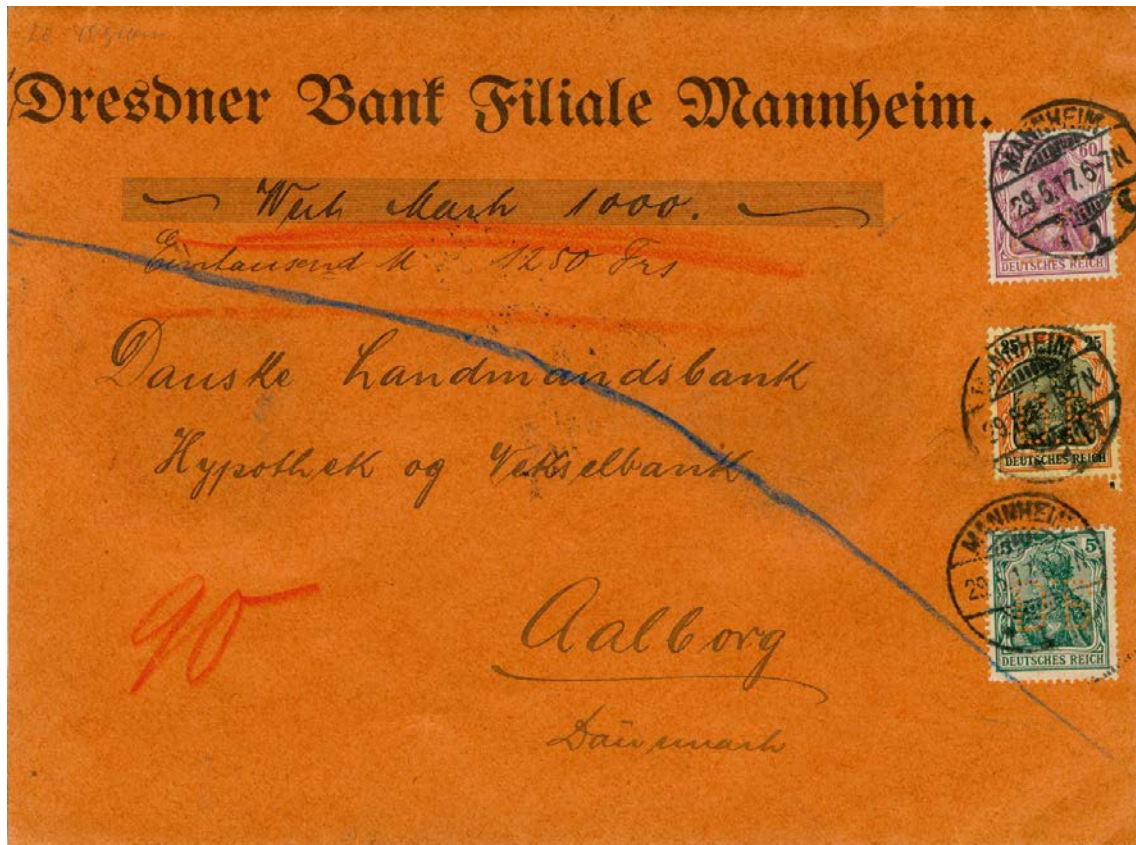 Dresdner Bank Filiale Mannheim.
Wert Mark 1000.
Eintausend M 1250 Frs
Danske Landmandsbank
Hypothek og Vekselbank
Aalborg
Dänemark
90
MANNHEIM
29.5.17.6-7N
1
60
DEUTSCHES REICH
MANNHEIM
29
25 25
DEUTSCHES REICH
MANNHEIM
29
5
DEUTSCHES REICH